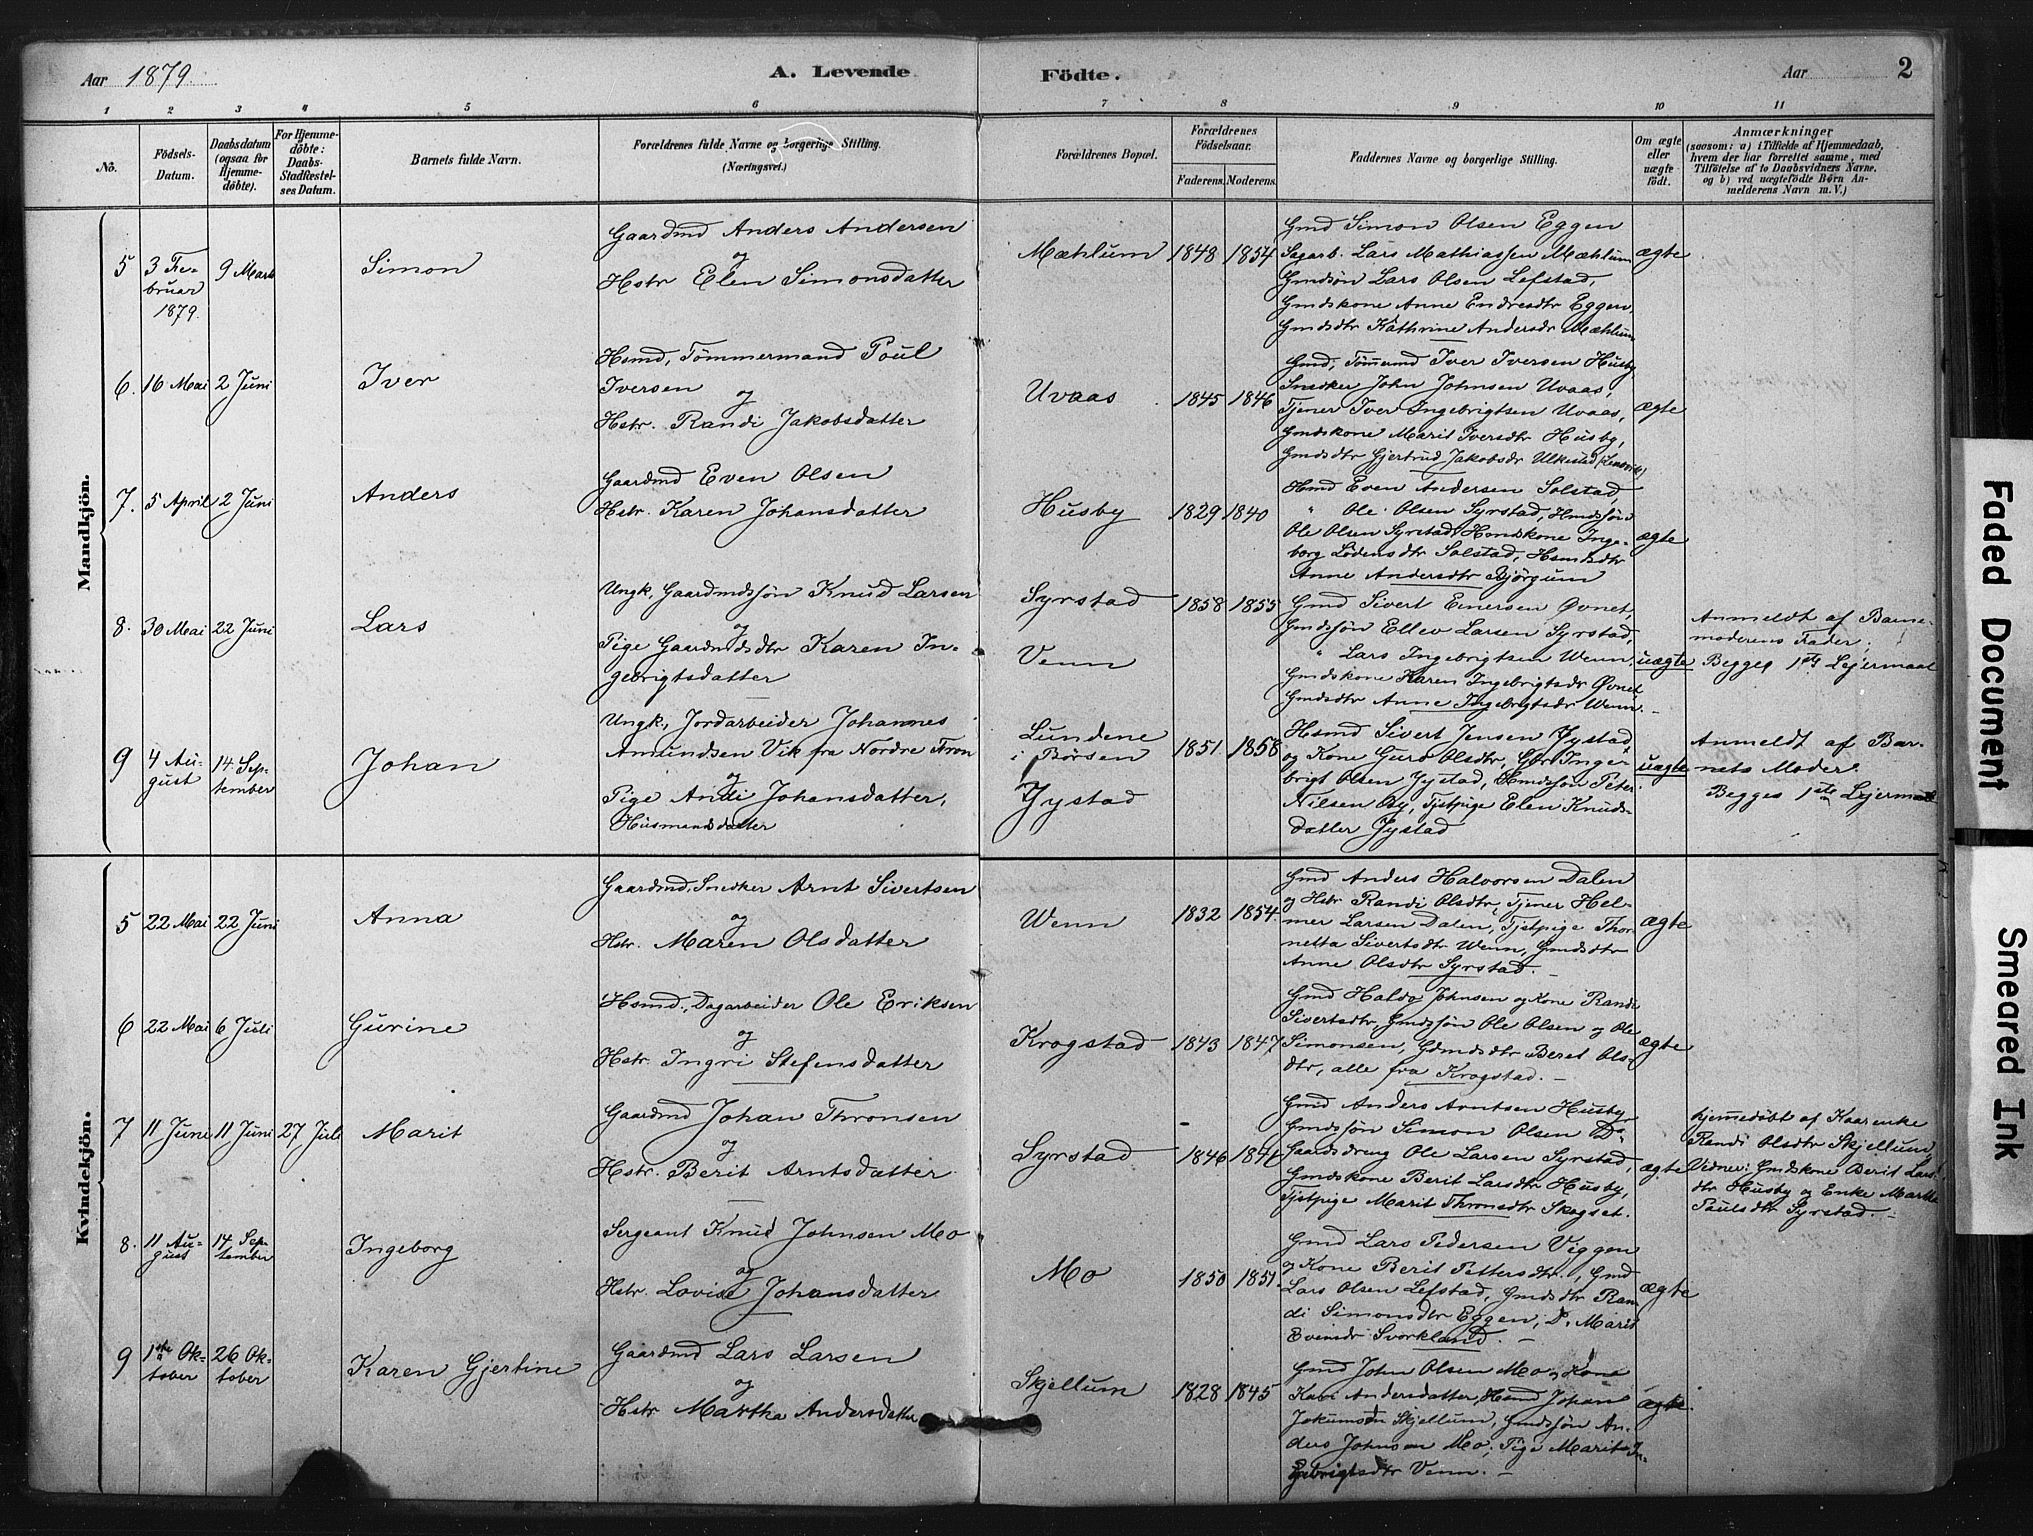 Aar 1879.
A. Levende
Födte.
Aar
2
1
2
3
4
5
6
7
8
9
10
11
No.
Födsels-
Datum.
Daabsdatum
(ogsaa for
Hjemme-
döbte).
For Hjemme-
döbte:
Daabs-
Stadfæstel-
ses Datum.
Barnets fulde Navn.
Forældrenes fulde Navne og borgerlige Stilling.
(Næringsvei.)
Forældrenes Bopæl.
Forældrenes
Födselsaar.
Faderens.
Moderens.
Faddernes Navne og borgerlige Stilling.
Om ægte
eller
uægte
födt.
Anmærkninger
(saasom: a) i Tilfælde af Hjemmedaab,
hvem der har forrettet samme, med
Tilföielse af to Daabsvidners Navne,
og b) ved uægtefödte Börn An-
melderens Navn m. V.)
Mandkjön.
5
3 Fe-
bruar
1879.
9 Marts
Simon
Gaardmd Anders Andersen
og
Hstr Elen Simonsdatter
Mæhlum
1848
1854
Gmd Simon Olsen Eggen
Sagarb. Lars Mathiassen Mæhlum
Gmdsøn Lars Olsen Lefstad,
Gmdskone Anne Endresdtr Eggen,
Gmdsdtr Kathrine Andersdr Mæhlum
ægte
6.
16 Mai
2 Juni
Iver
Hsmd, Tømmermand Poul
Iversen
og
Hstr. Randi Jakobsdatter
Uvaas
1845
1846
Gmd, Tømermd Iver Iversen Husby,
Snedker John Johnsen Uvaas,
Tjener Iver Ingebrigtsen Uvaas,
Gmdskone Marit Iversdtr Husby,
Gmdsdtr Gjertrud Jakobsdr Ulkestad (Lensvik)
ægte
7.
5 April
2 Juni
Anders
Gaardmd Even Olsen
Hstr. Karen Johansdatter
Husby
1829
1840
Hsmd Even Andersen Solstad,
" Ole Olsen Syrstad, Hmdssøn
Ole Olsen Syrstad, Hsmdskone Inge-
borg Lødensdtr Solstad, Hsmdsdtr
Anne Andersdtr Bjørgum
ægte
8.
30 Mai
22 Juni
Lars
Ungk. Gaardmdssøn Knud Larsen
og
Pige Gaardmdsdtr Karen In-
gebrigtsdatter
Syrstad
Venn
1858
1855
Gmd Sivert Einersen Øvnet,
Gmdssøn Ellev Larsen Syrstad,
" Lars Ingebrigtsen Wenn,
Gmdskone Karen Ingebrigtsdr Øvnet,
Gmdsdtr Anne Ingebrigtsdr Wenn.
uægte
Anmeldt af Barne-
moderens Fader.
Begges 1ste Lejermaal
9
4 Au-
gust
14 Sep-
tember
Johan
Ungk, Jordarbeider Johannes
Amundsen Vik fra Nordre Fron
og
Pige Andi Johansdatter,
Husmandsdatter
Lundene
i Børsen
Jystad
1851.
1858
Hsmd Sivert Jensen Jystad
og Kone Guro Olsdtr, Gbr Inge-
brigt Olsen Jystad, Hmdssøn Peter
Nilsen By, Tjstpige Elen Knuds-
datter Jystad
uægte
Anmeldt af Bar-
nets Moder.
Begges 1ste Lejermaal
Kvindekjön.
5
22 Mai
22 Juni
Anna
Gaardmd, Snedker Arnt Sivertsen
og
Hstr. Maren Olsdatter
Wenn
1832
1854.
Gmd Anders Halvorsen Dalen
og Hstr Randi Olsdtr, Tjener Hel-
mer Larsen Dalen, Tjstpige Thor-
netta Sivertsdtr Wenn, Gmdsdtr
Anne Olsdtr Syrstad. –
ægte
6
22 Mai
6 Juli
Gurine
Hsmd, Dagarbeider Ole Eriksen
og
Hstr. Ingri Stefensdatter
Krogstad
1843
1847
Gmd Haldo Johnsen og Kone Randi
Sivertsdtr, Gmdssøn Ole Olsen og Ole
Simonsen, Gdmdsdtr Berit Ols-
dtr, alle fra Krogstad. –
ægte
7
11 Juni
11 Juni
27 Juli
Marit
Gaardmd Johan Thronsen
og
Hstr. Berit Arntsdatter
Syrstad
1846
1846
Gmd Anders Arntsen Husby
Gmdssøn Simon Olsen Do
Gaardsdreng Ole Larsen Syrstad,
Gmdskone Berit Larsdtr Husby,
Tjstpige Marit Thronsdtr Skogset.
ægte
hjemmedøbt af Kaarenke
Randi Olsdtr Skjellum,
Vidner: Gmdskone Berit Lars-
dtr Husby og Enke Martha
Paulsdtr Syrstad. –
8.
11 Au-
gust
14 Sep-
tember
Ingeborg
Sergeant Knud Johnsen Mo
og
Hstr. Lovise Johansdatter
Mo
1850
1851.
Gmd Lars Pedersen Viggen
og Kone Berit Pettersdtr., Gmd
Lars Olsen Lefstad, Gmdsdtr Ran-
di Simonsdtr Eggen, D. Marit
Evensdr Svorkland. –
ægte
9
1ste Ok-
tober
26 Ok-
tober
Karen Gjertine
Gaardmd Lars Larsen
og
Hstr Martha Andersdatter
Skjellum
1828
1845
Gmd John Olsen Mo og Kone
Kari Andersdatter, Hsmd Johan
Jokumsen Skjellum, Gmdssøn An-
ders Johnsen Mo, Pige Marit In-
gebrigtsdtr Venn. –
ægte.
Faded Document
Smeared Ink